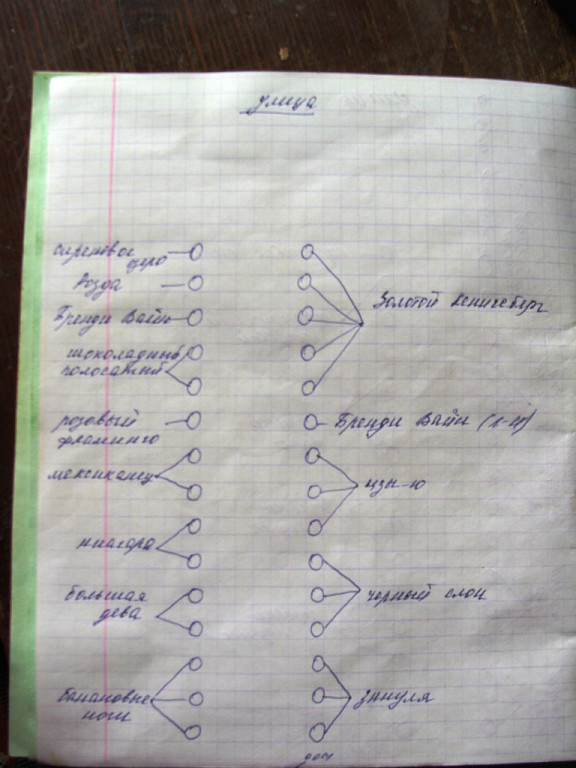 улица
сиреневое
озеро
Бренди Вайн
шоколадный
полосатый
розовый
фламинго
мексиканец
ниагара
большая
дева
банановые
ноги
Золотой Кенигсберг
Бренди Вайн
цзы-ю
черный слон
зинуля
дом